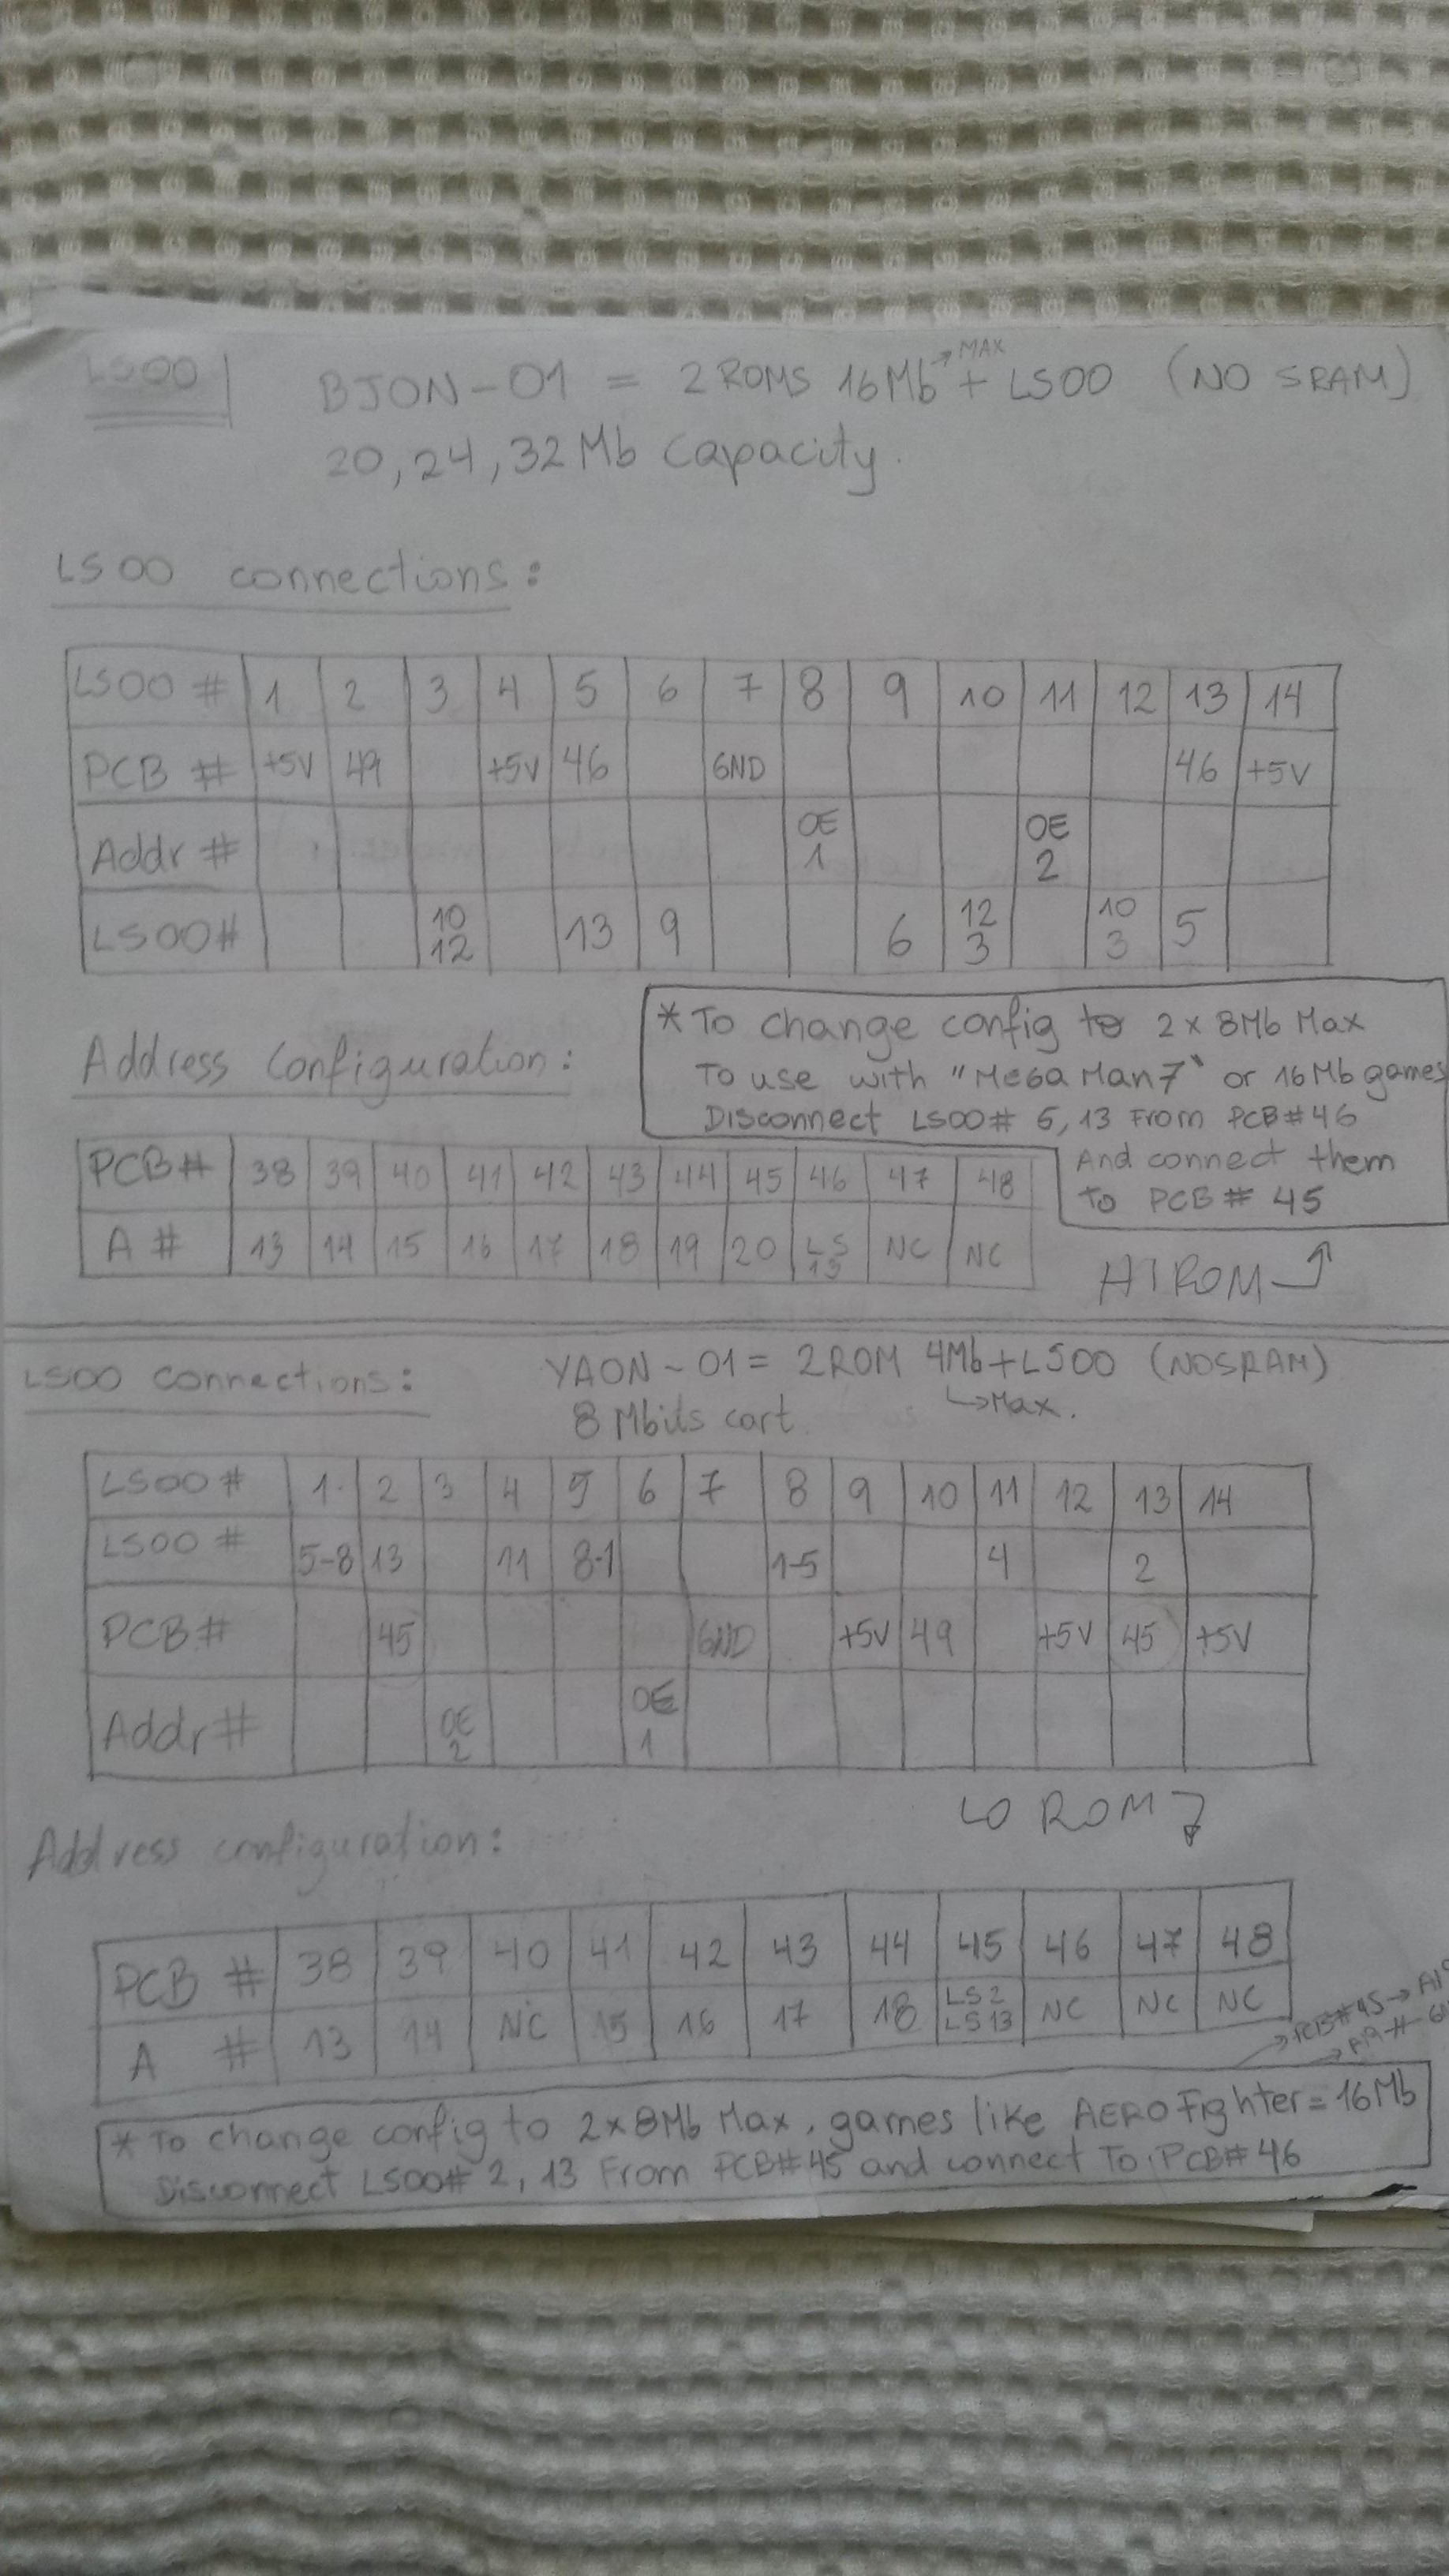 LS00
BJON-01 = 2 ROMS 16Mb + LS00 (NO SRAM)
→ MAX
20, 24, 32 Mb Capacity.
LS00 connections:
LS00 # 1 2 3 4 5 6 7 8 9 10 11 12 13 14
PCB # +5V 49 +5V 46 GND 46 +5V
Addr # OE 1 OE 2
LS00# 10 12 13 9 6 12 3 10 3 5
* To change config to 2 x 8Mb Max
To use with "Mega Man 7" or 16Mb games
Disconnect LS00# 5, 13 From PCB#46
And connect them
To PCB# 45
Address Configuration:
PCB# 38 39 40 41 42 43 44 45 46 47 48
A # 13 14 15 16 17 18 19 20 LS 13 NC NC
HIROM
LS00 connections:
YAON-01= 2ROM 4Mb+LS00 (NOSRAM)
↳Max.
8 Mbits cart
LS00 # 1 2 3 4 5 6 7 8 9 10 11 12 13 14
LS00 # 5-8 13 11 8-1 1-5 4 2
PCB# 45 GND +5V 49 +5V 45 +5V
Addr# OE 2 OE 1
LO ROM
Address configuration:
PCB # 38 39 40 41 42 43 44 45 46 47 48
A # 13 14 NC 15 16 17 18 LS2 LS13 NC NC NC
→ PCB#45→
* To change config to 2x8Mb Max, games like AERO Fighter = 16Mb
Disconnect LS00# 2, 13 From PCB#45 and connect To PCB# 46